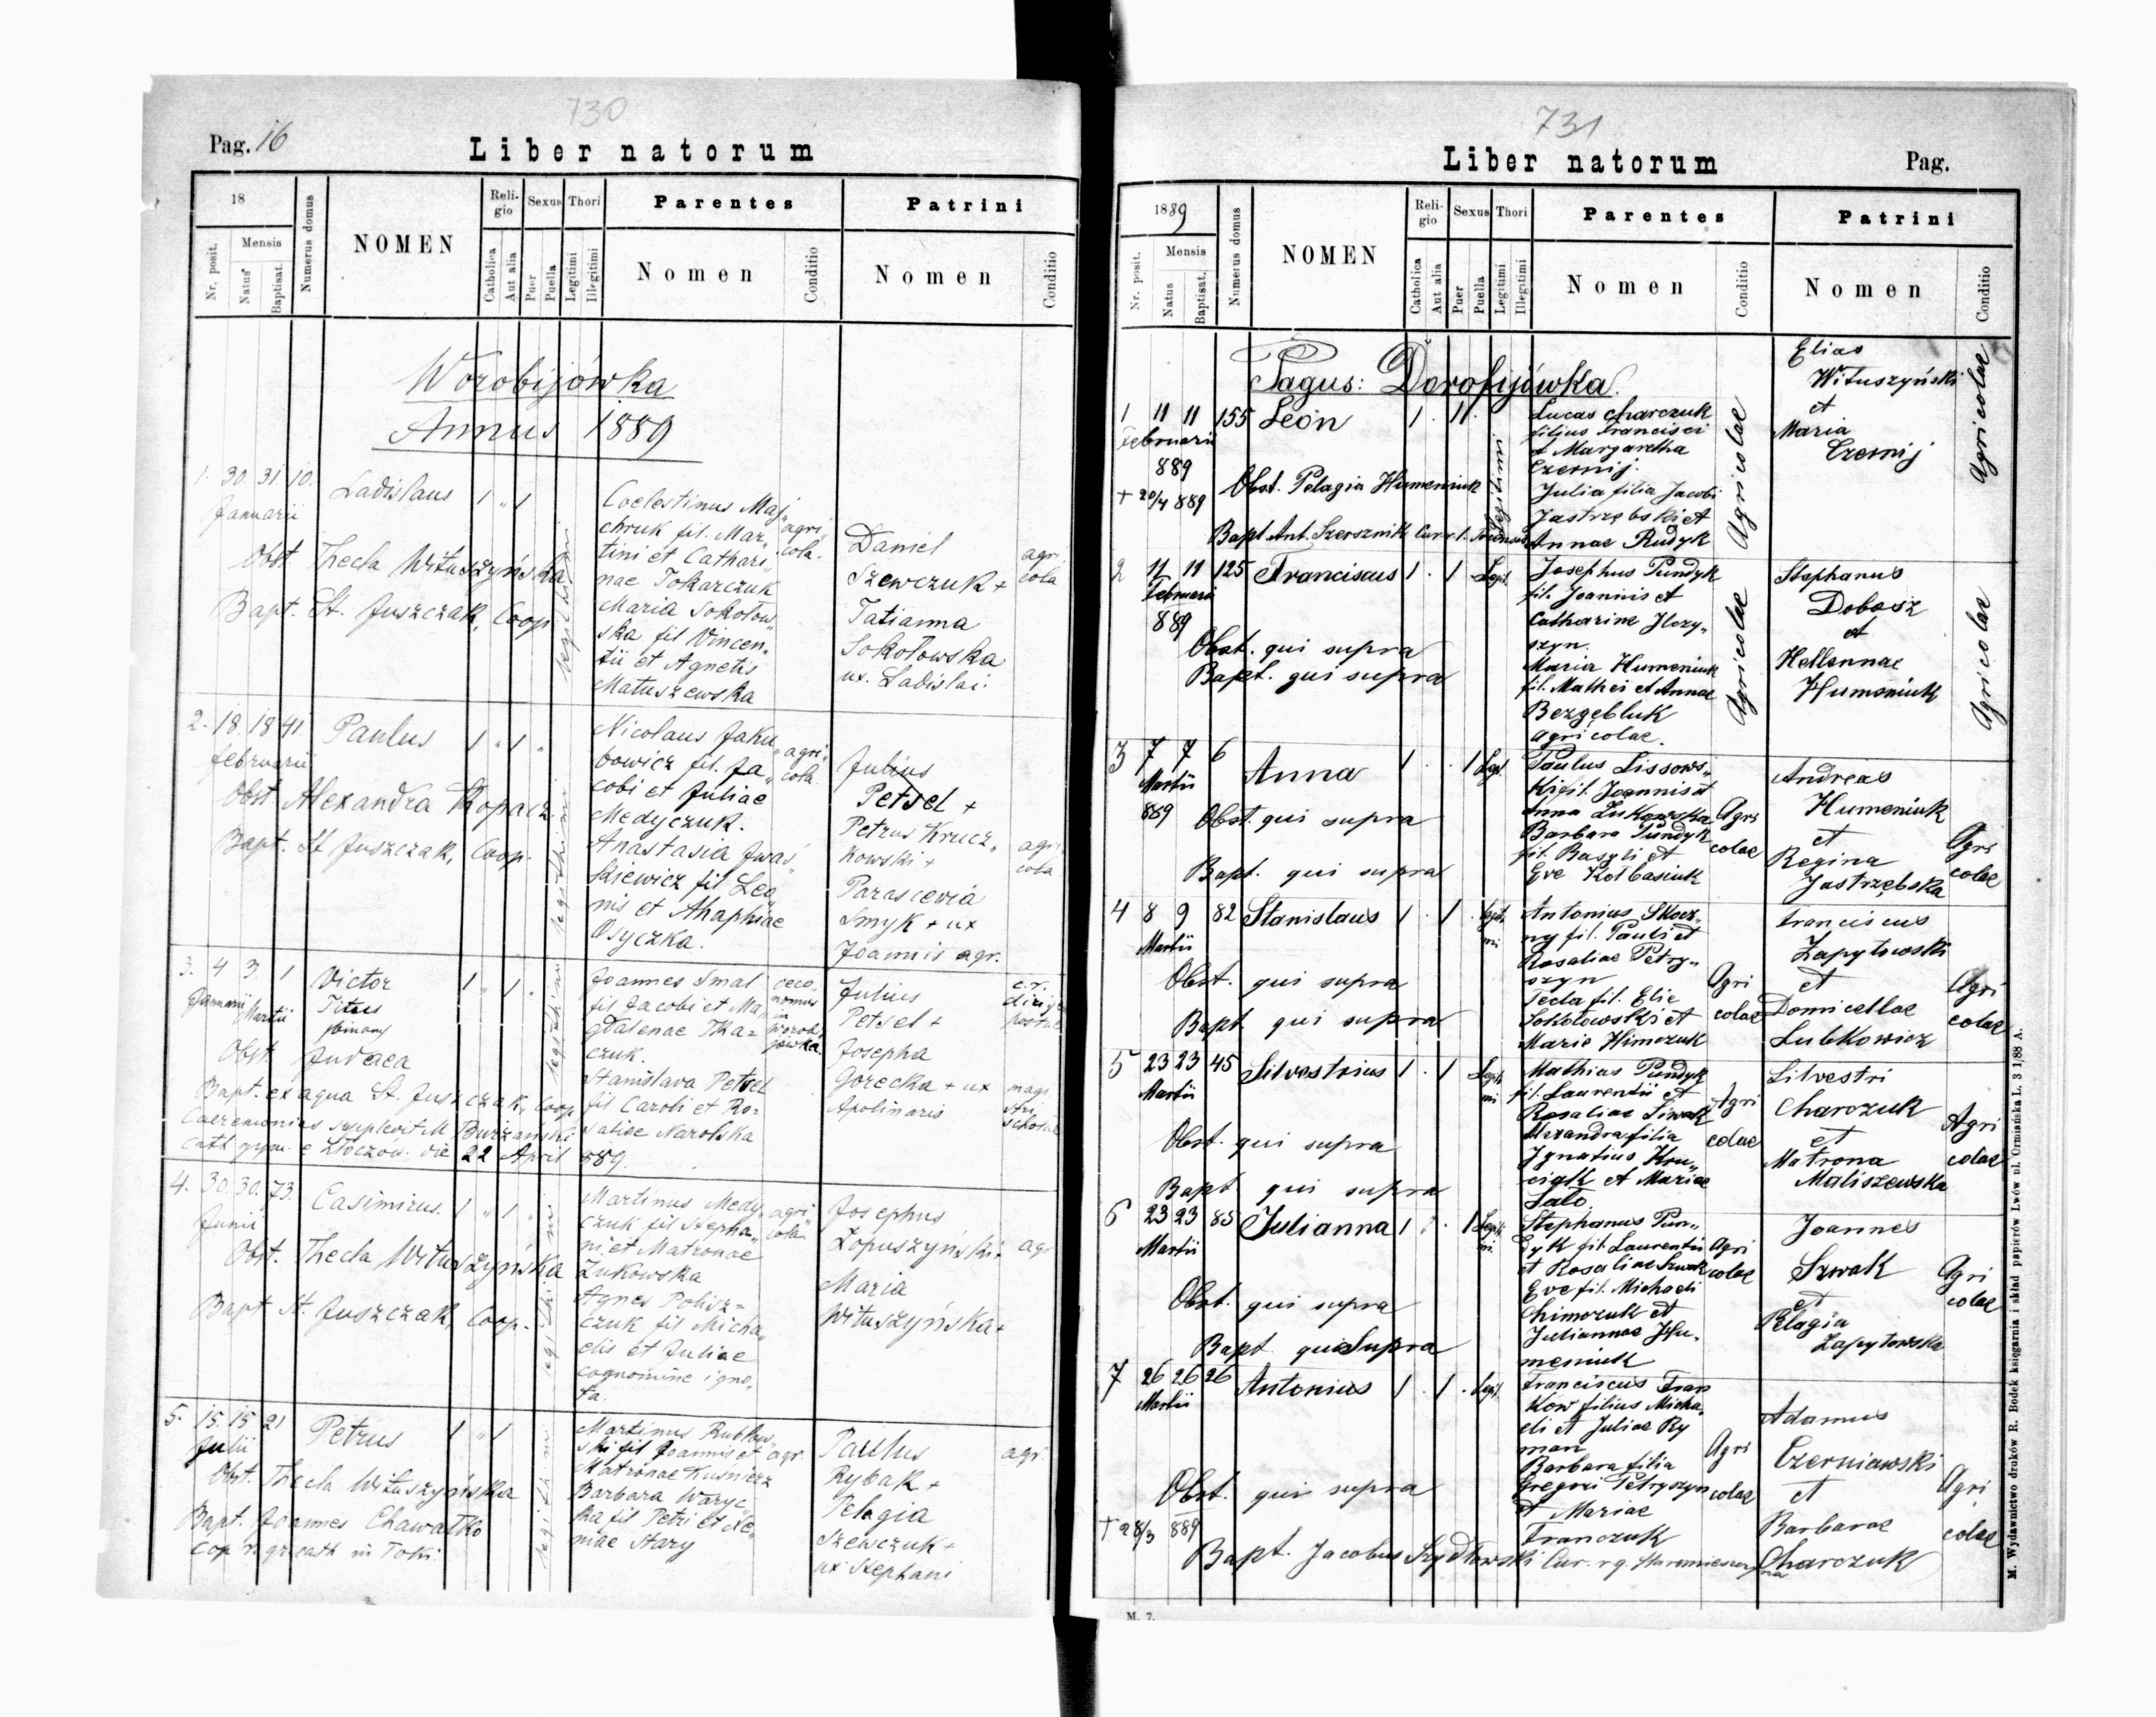 730
Pag. 16
Liber natorum
18
Nr. posit.
Mensis
Natus
Baptisat.
Numerus domus
NOMEN
Religio
Catholica
Aut alia
Sexus
Puer
Puella
Thori
Legitimi
Illegitimi
Parentes
Nomen
Conditio
Patrini
Nomen
Conditio
Worobijówka
Annus 1889
1. 30. 31 10.
Januarii
Ladislaus
1 " 1
legitimi
Obst Thecla Wituszyńska
Bapt. St. Juszczak, Coop
Coelestinus Maj"
chruk fil. Mar"
tini et Cathari"
nae Tokarczuk
Maria Sokołow"
ska fil Vincen"
tii et Agnetis
Matuszewska
agri"
cola.
Daniel
Szewczuk +
Tatianna
Sokołowska
ux. Ladislai.
agri
cola
2. 18. 18 41.
februarii
Paulus
1 " 1 "
Obst Alexandra Kopacz
Bapt. St Juszczak, Coop.
Nicolaus Jaku"
bowicz fil. Ja"
cobi et Juliae
Medyczuk.
Anastasia Iwaś"
kiewicz fil Leo"
nis et Ahaphiae
Osyczka.
agri"
cola
Julius
Petsel +
Petrus Krucz"
kowski +
Parascevia
Smyk + ux
Joannis agr.
agri
cola
3. 4 3. 1
Januarii Martii
Victor
Titus
binom
1 " 1 .
Obst Judaea
Bapt. ex aqua St. Juszczak, Coop
Caeremonias supplevit M Burzański
Cath gym. e Złoczów. die 22 April 889.
Joannes Smal
fil Jacobi et Ma"
gdalenae Tka=
czuk.
Stanislava Petsel
fil Caroli et Ro=
saliae Narolska
oeco"
nomus
in
Worobi
jówka.
Julius
Petsel +
Josepha
Gorecka + ux
Apolinaris
c.r.
postae
magi
stri
scholae
4. 30. 30. 73.
Junii
Casimirus.
1 " 1 "
Obst. Thecla Wituszyńska
Bapt St. Juszczak, Coop.
Martinus Medy"
czuk fil Stepha"
ni et Matronae
Żukowska
Agnes Polisz=
czuk fil Micha"
elis et Juliae
cognomine igno"
ta.
agri
cola
Josephus
Łopuszyński +
Maria
Wituszyńska +
agr
5. 15. 15 21
Julii
Petrus
1 " 1
Obst. Thecla Wituszyńska
Bapt. Joannes Chawałko
cop r. gr cath in Toki.
Martinus Rubkow"
ski fil Joannis et
Matronae Kuśnierz
Barbara Waryc"
ka fil Petri et Xe"
niae Stary
agr.
Paulus
Rybak +
Pelagia
Szewczuk +
ux Stephani
agr.
731
Liber natorum
Pag.
1889
Nr. posit.
Mensis
Natus
Baptisat.
Numerus domus
NOMEN
Religio
Catholica
Aut alia
Sexus
Puer
Puella
Thori
Legitimi
Illegitimi
Parentes
Nomen
Conditio
Patrini
Nomen
Conditio
Pagus: Dorofijówka.
1 11 11 155 Leon
Februarii
889
+ 20/4 889
1 . 1
Legitimi
Obst. Pelagia Humeniuk
Bapt Ant. Szersznik Cur
Lucas Charczuk
filius Francisci
et Margaretha
Czernij.
Julia filia Jacobi
Jastrzębski et
Annae Rudyk
Agricolae
Elias
Wituszyński
et
Maria
Czernij
Agricolae
2 11 11 125 Franciscus 1 . 1 Legit.
Februarii
889
Obst. qui supra
Bapt. qui supra
Josephus Pundyk
fil. Joannis et
Catharine Ilczy"
szyn.
Maria Humeniuk
fil. Mathei et Annae
Bezgębluk
agricolae.
Agricolae
Stephanus
Dobosz
et
Hellennae
Humeniuk
Agricolae
3 7 7 6 Anna 1 . . 1 Legit.
Martii
889
Obst. qui supra
Bapt. qui supra
Paulus Lissows"
ki fil. Joannis et
Anna Lukowska
Barbara Pundyk
fil. Basyli et
Eve Kołbasiuk
Agri
colae
Andreas
Humeniuk
et
Regina
Jastrzębska
Agri
colae
4 8 9 82 Stanislaus 1 . 1 . Legiti
mi
Martii
Obst. qui supra
Bapt qui supra
Antonius Skocz"
ny fil. Pauli et
Rosaliae Petry"
szyn
Tecla fil. Elie
Sokołowski et
Marie Himczuk
Agri
colae
Franciscus
Zapytowski
et
Domicellae
Lubkowicz
Agri
colae
5 23 23 45 Silvestrius 1 . 1 Legiti
mi
Martii
Obst. qui supra
Bapt qui supra
Mathias Pundyk
fil. Laurentii et
Rosaliae Siwak
Alexandra filia
Ignatius Kru"
ciak et Mariae
Sało
Agri
colae
Silvestri
Charczuk
et
Matrona
Maliszewska
Agri
colae
6 23 23 85 Julianna 1 . . 1 Legiti
mi
Martii
Obst. qui supra
Bapt qui supra
Stephanus Pun"
dyk fil Laurentii
et Rosaliae Szwak
Eve fil. Michaeli
Chimczuk et
Juliannae Hu"
meniuk
Agri
colae
Joannes
Szwak
et
Pelagia
Zapytowska
Agri
colae
7 26 26 26 Antonius 1 . 1 . Legit.
Martii
Obst. qui supra
+ 28/3 889
Bapt. Jacobus Szydłowski Cur. r. g.
Franciscus Fran
ków filius Micha"
eli et Juliae Ry
man
Barbara filia
Gregori Petryszyn
et Mariae
Franczuk
Agri
colae
Adamus
Czerniawski
et
Barbarae
Charczuk
Agri
colae
M. 7.
M. Wydawnictwo druków R. Bodek księgarnia i skład papierów Lwów ul. Ormiańska L. 3 1/88 A.